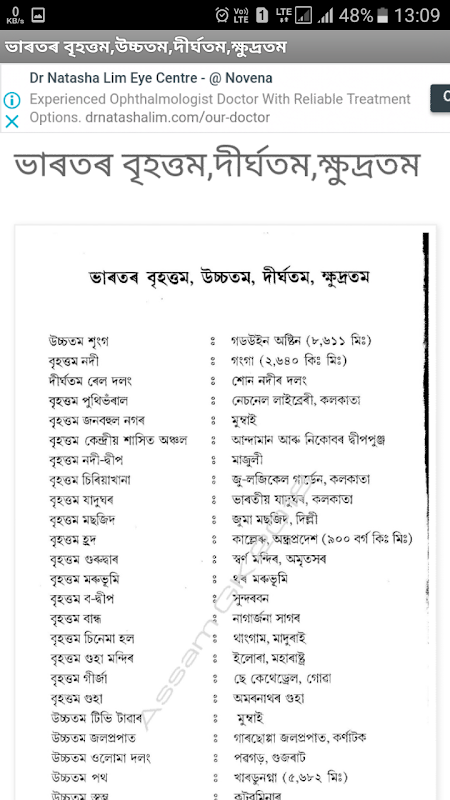 0 KB/s Voo) LTE 1 LTE 48% 13:09
ভাৰতৰ বৃহত্তম,উচ্চতম,দীৰ্ঘতম,ক্ষুদ্ৰতম
Dr Natasha Lim Eye Centre - @ Novena
Experienced Ophthalmologist Doctor With Reliable Treatment
Options. drnatashalim.com/our-doctor
ভাৰতৰ বৃহত্তম,দীৰ্ঘতম,ক্ষুদ্ৰতম
ভাৰতৰ বৃহত্তম, উচ্চতম, দীৰ্ঘতম, ক্ষুদ্ৰতম
উচ্চতম শৃংগ : গডউইন অষ্টিন (৮,৬১১ মিঃ)
বৃহত্তম নদী : গংগা (২,৬৪০ কিঃ মিঃ)
দীৰ্ঘতম ৰেল দলং : শোন নদীৰ দলং
বৃহত্তম পুথিভঁৰাল : নেচনেল লাইব্ৰেৰী, কলকাতা
বৃহত্তম জনবহুল নগৰ : মুম্বাই
বৃহত্তম কেন্দ্ৰীয় শাসিত অঞ্চল : আন্দামান আৰু নিকোবৰ দ্বীপপুঞ্জ
বৃহত্তম নদী-দ্বীপ : মাজুলী
বৃহত্তম চিৰিয়াখানা : জু-লজিকেল গাৰ্ডেন, কলকাতা
বৃহত্তম যাদুঘৰ : ভাৰতীয় যাদুঘৰ, কলকাতা
বৃহত্তম মছজিদ : জুমা মছজিদ, দিল্লী
বৃহত্তম হ্ৰদ : কাল্লেৰু, অন্ধ্ৰপ্ৰদেশ (৯০০ বৰ্গ কিঃ মিঃ)
বৃহত্তম গুৰুদ্বাৰ : স্বৰ্ণ মন্দিৰ, অমৃতসৰ
বৃহত্তম মৰুভূমি : থৰ মৰুভূমি
বৃহত্তম ব-দ্বীপ : সুন্দৰবন
বৃহত্তম বান্ধ : নাগাৰ্জনা সাগৰ
বৃহত্তম চিনেমা হল : থাংগাম, মাদুৰাই
বৃহত্তম গুহা মন্দিৰ : ইলোৰা, মহাৰাষ্ট্ৰ
বৃহত্তম গীৰ্জা : ছে কেথেড্ৰেল, গোৱা
বৃহত্তম গুহা : অমৰনাথৰ গুহা
উচ্চতম টিভি টাৱাৰ : মুম্বাই
উচ্চতম জলপ্ৰপাত : গাৰছোপ্পা জলপ্ৰপাত, কৰ্ণাটক
উচ্চতম ওলোমা দলং : পৱগড়, গুজৰাট
উচ্চতম পথ : খাৰডুনগ্লা (৫,৬৮২ মিঃ)
উচ্চতম স্তম্ভ : কুটবমিনাৰ